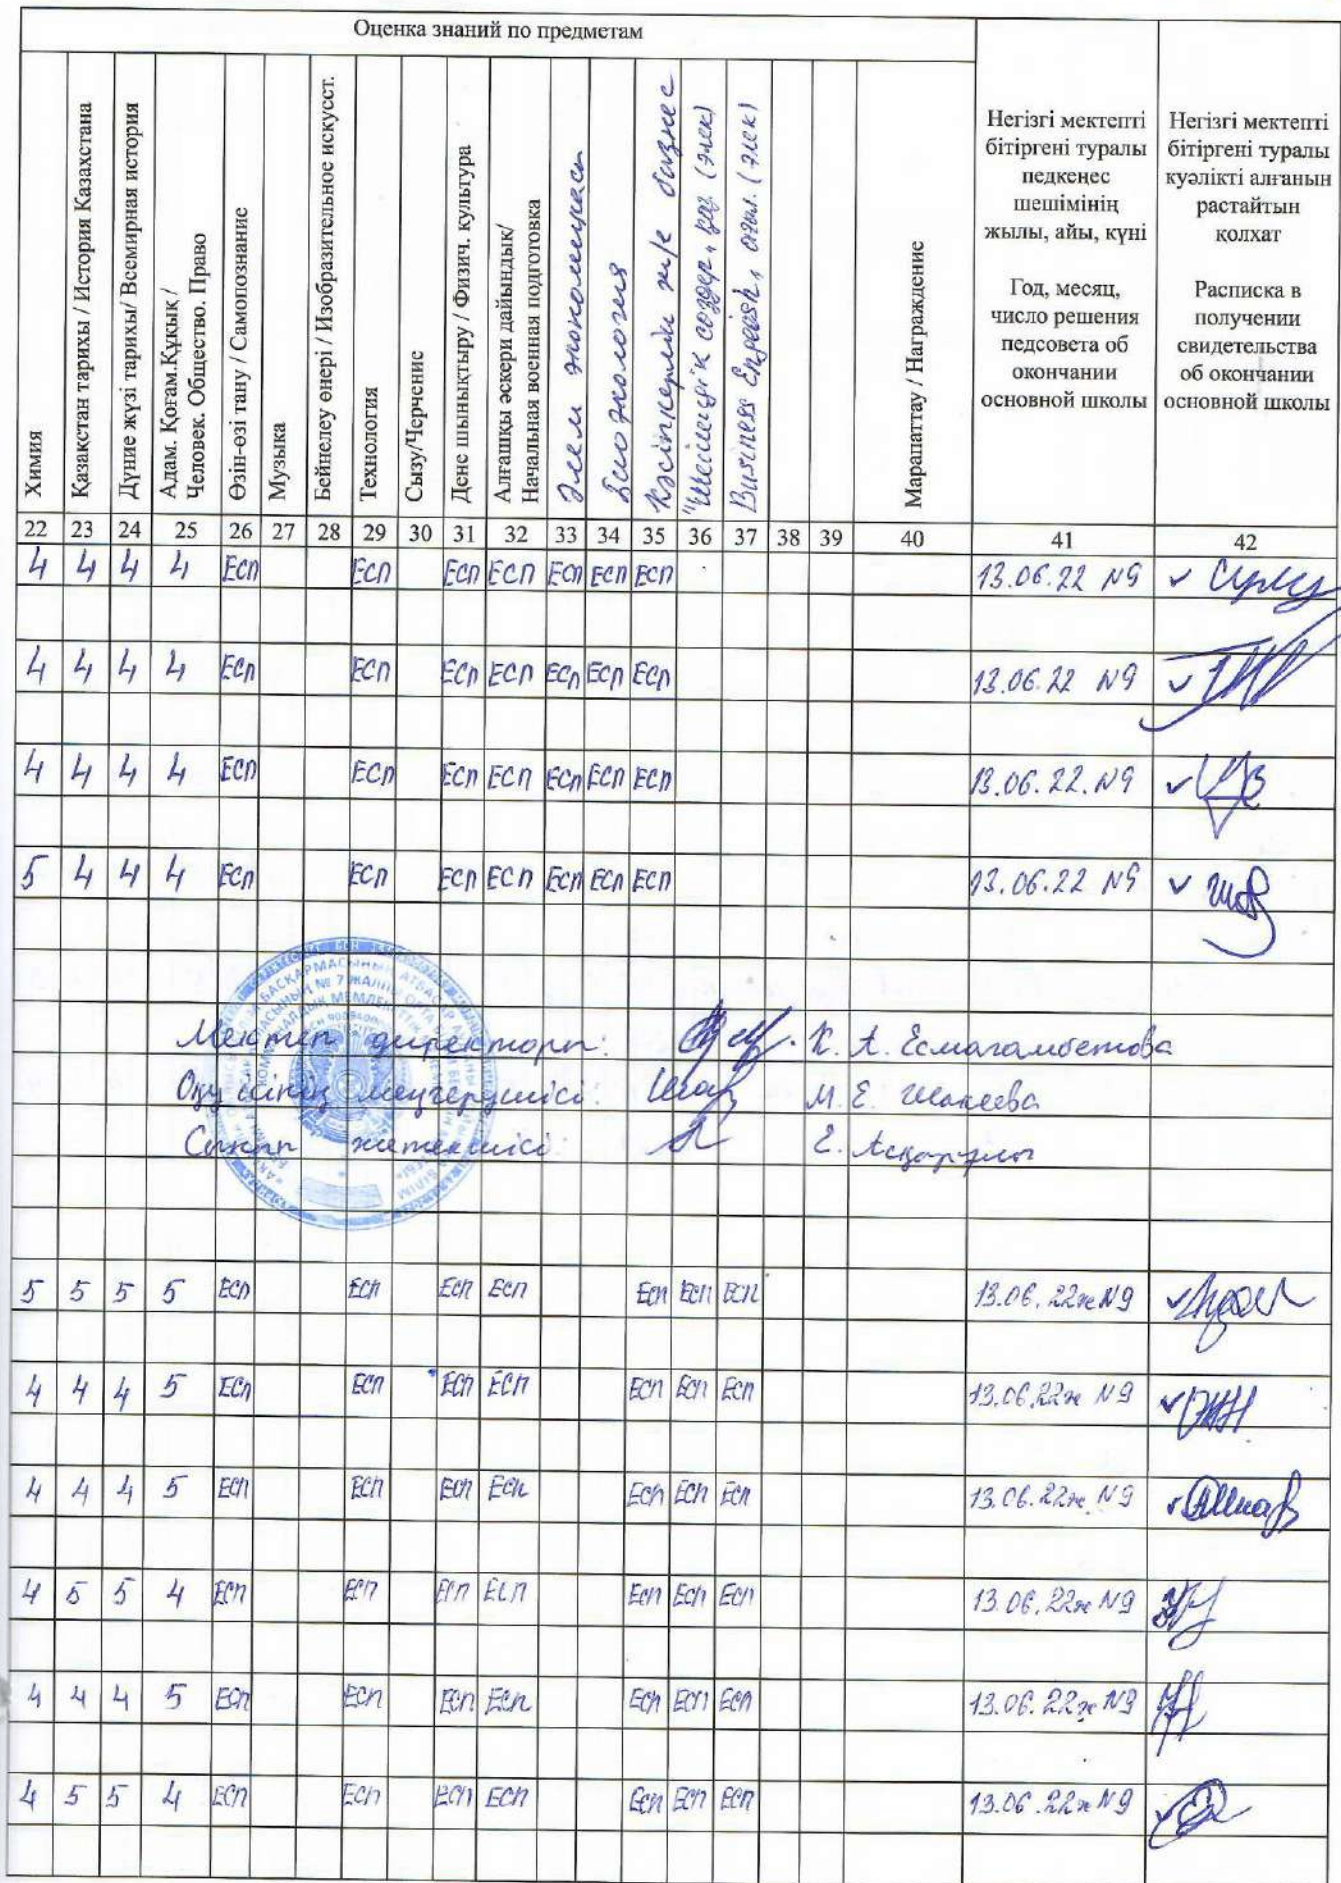 Оценка знаний по предметам
Химия
Қазақстан тарихы / История Казахстана
Дүние жүзі тарихы/ Всемирная история
Адам. Қоғам.Құқық /
Человек. Общество. Право
Өзін-өзі тану / Самопознание
Музыка
Бейнелеу өнері / Изобразительное искусст.
Технология
Сызу/Черчение
Дене шынықтыру / Физич. культура
Алғашқы әскери дайындық/
Начальная военная подготовка
Әлем экономикасы
Биоэкология
Кәсіпкерлік ж/е бизнес
"Шешендік сөздер" қаз (элек)
Business English, ағыл. (элек)
Марапаттау / Награждение
Негізгі мектепті
бітіргені туралы
педкеңес
шешімінің
жылы, айы, күні
Год, месяц,
число решения
педсовета об
окончании
основной школы
Негізгі мектепті
бітіргені туралы
куәлікті алғанын
растайтын
қолхат
Расписка в
получении
свидетельства
об окончании
основной школы
22 23 24 25 26 27 28 29 30 31 32 33 34 35 36 37 38 39 40 41 42
4 4 4 4 ЕСП ЕСП ЕСП ЕСП ЕСП ЕСП ЕСП 13.06.22 №9
4 4 4 4 ЕСП ЕСП ЕСП ЕСП ЕСП ЕСП ЕСП 13.06.22 №9
4 4 4 4 ЕСП ЕСП ЕСП ЕСП ЕСП ЕСП ЕСП 13.06.22. №9
5 4 4 4 ЕСП ЕСП ЕСП ЕСП ЕСП ЕСП ЕСП 13.06.22 №9
Мектеп директоры: К. А. Есмагамбетова
Оқу ісінің меңгерушісі: М. Е. Шакеева
Сынып жетекшісі: Е. Асқарұлы
5 5 5 5 ЕСП ЕСП ЕСП ЕСП ЕСП ЕСП ЕСП 13.06.22ж №9
4 4 4 5 ЕСП ЕСП ЕСП ЕСП ЕСП ЕСП ЕСП 13.06.22ж №9
4 4 4 5 ЕСП ЕСП ЕСП ЕСП ЕСП ЕСП ЕСП 13.06.22ж №9
4 5 5 4 ЕСП ЕСП ЕСП ЕСП ЕСП ЕСП ЕСП 13.06.22ж №9
4 4 4 5 ЕСП ЕСП ЕСП ЕСП ЕСП ЕСП ЕСП 13.06.22ж №9
4 5 5 4 ЕСП ЕСП ЕСП ЕСП ЕСП ЕСП ЕСП 13.06.22ж №9